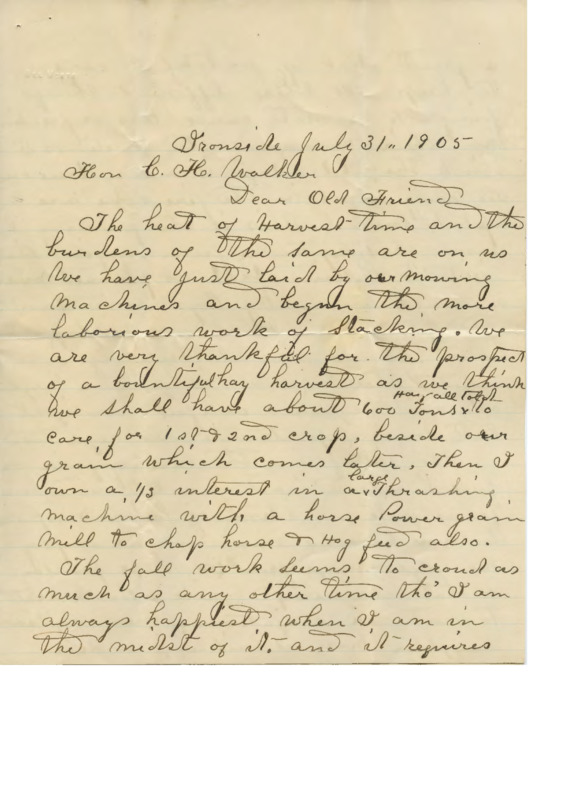 Ironside July 31" 1905
Hon C. H. Walker
Dear Old Friend
The heat of Harvest time and the
burdens of the same are on us
We have just laid by our mowing
machines and begun the more
laborious work of Stacking. We
are very thankful for the prospect
of a bountiful hay harvest as we think
Hay all told
we shall have about 600 Tons to
care for 1st & 2nd crop, beside our
grain which comes later. Then I
large
own a 1/3 interest in a Thrashing
machine with a horse Power grain
mill to chop horse & Hog feed also.
The fall work seems to croud as
much as any other time tho' I am
always happiest when I am in
the midst of it. and it requires